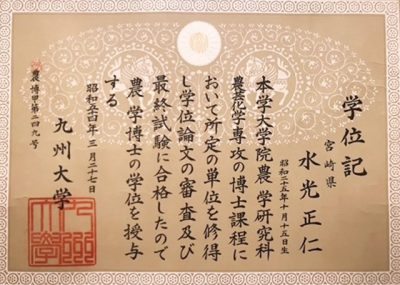 学位記
宮崎県
水光正仁
昭和二十五年十月十五日生
本学大学院農学研究科
農芸化学専攻の博士課程に
おいて所定の単位を修得
し学位論文の審査及び
最終試験に合格したので
農学博士の学位を授与
する
昭和五四年三月二十七日
九州大学
農博甲第二四九号